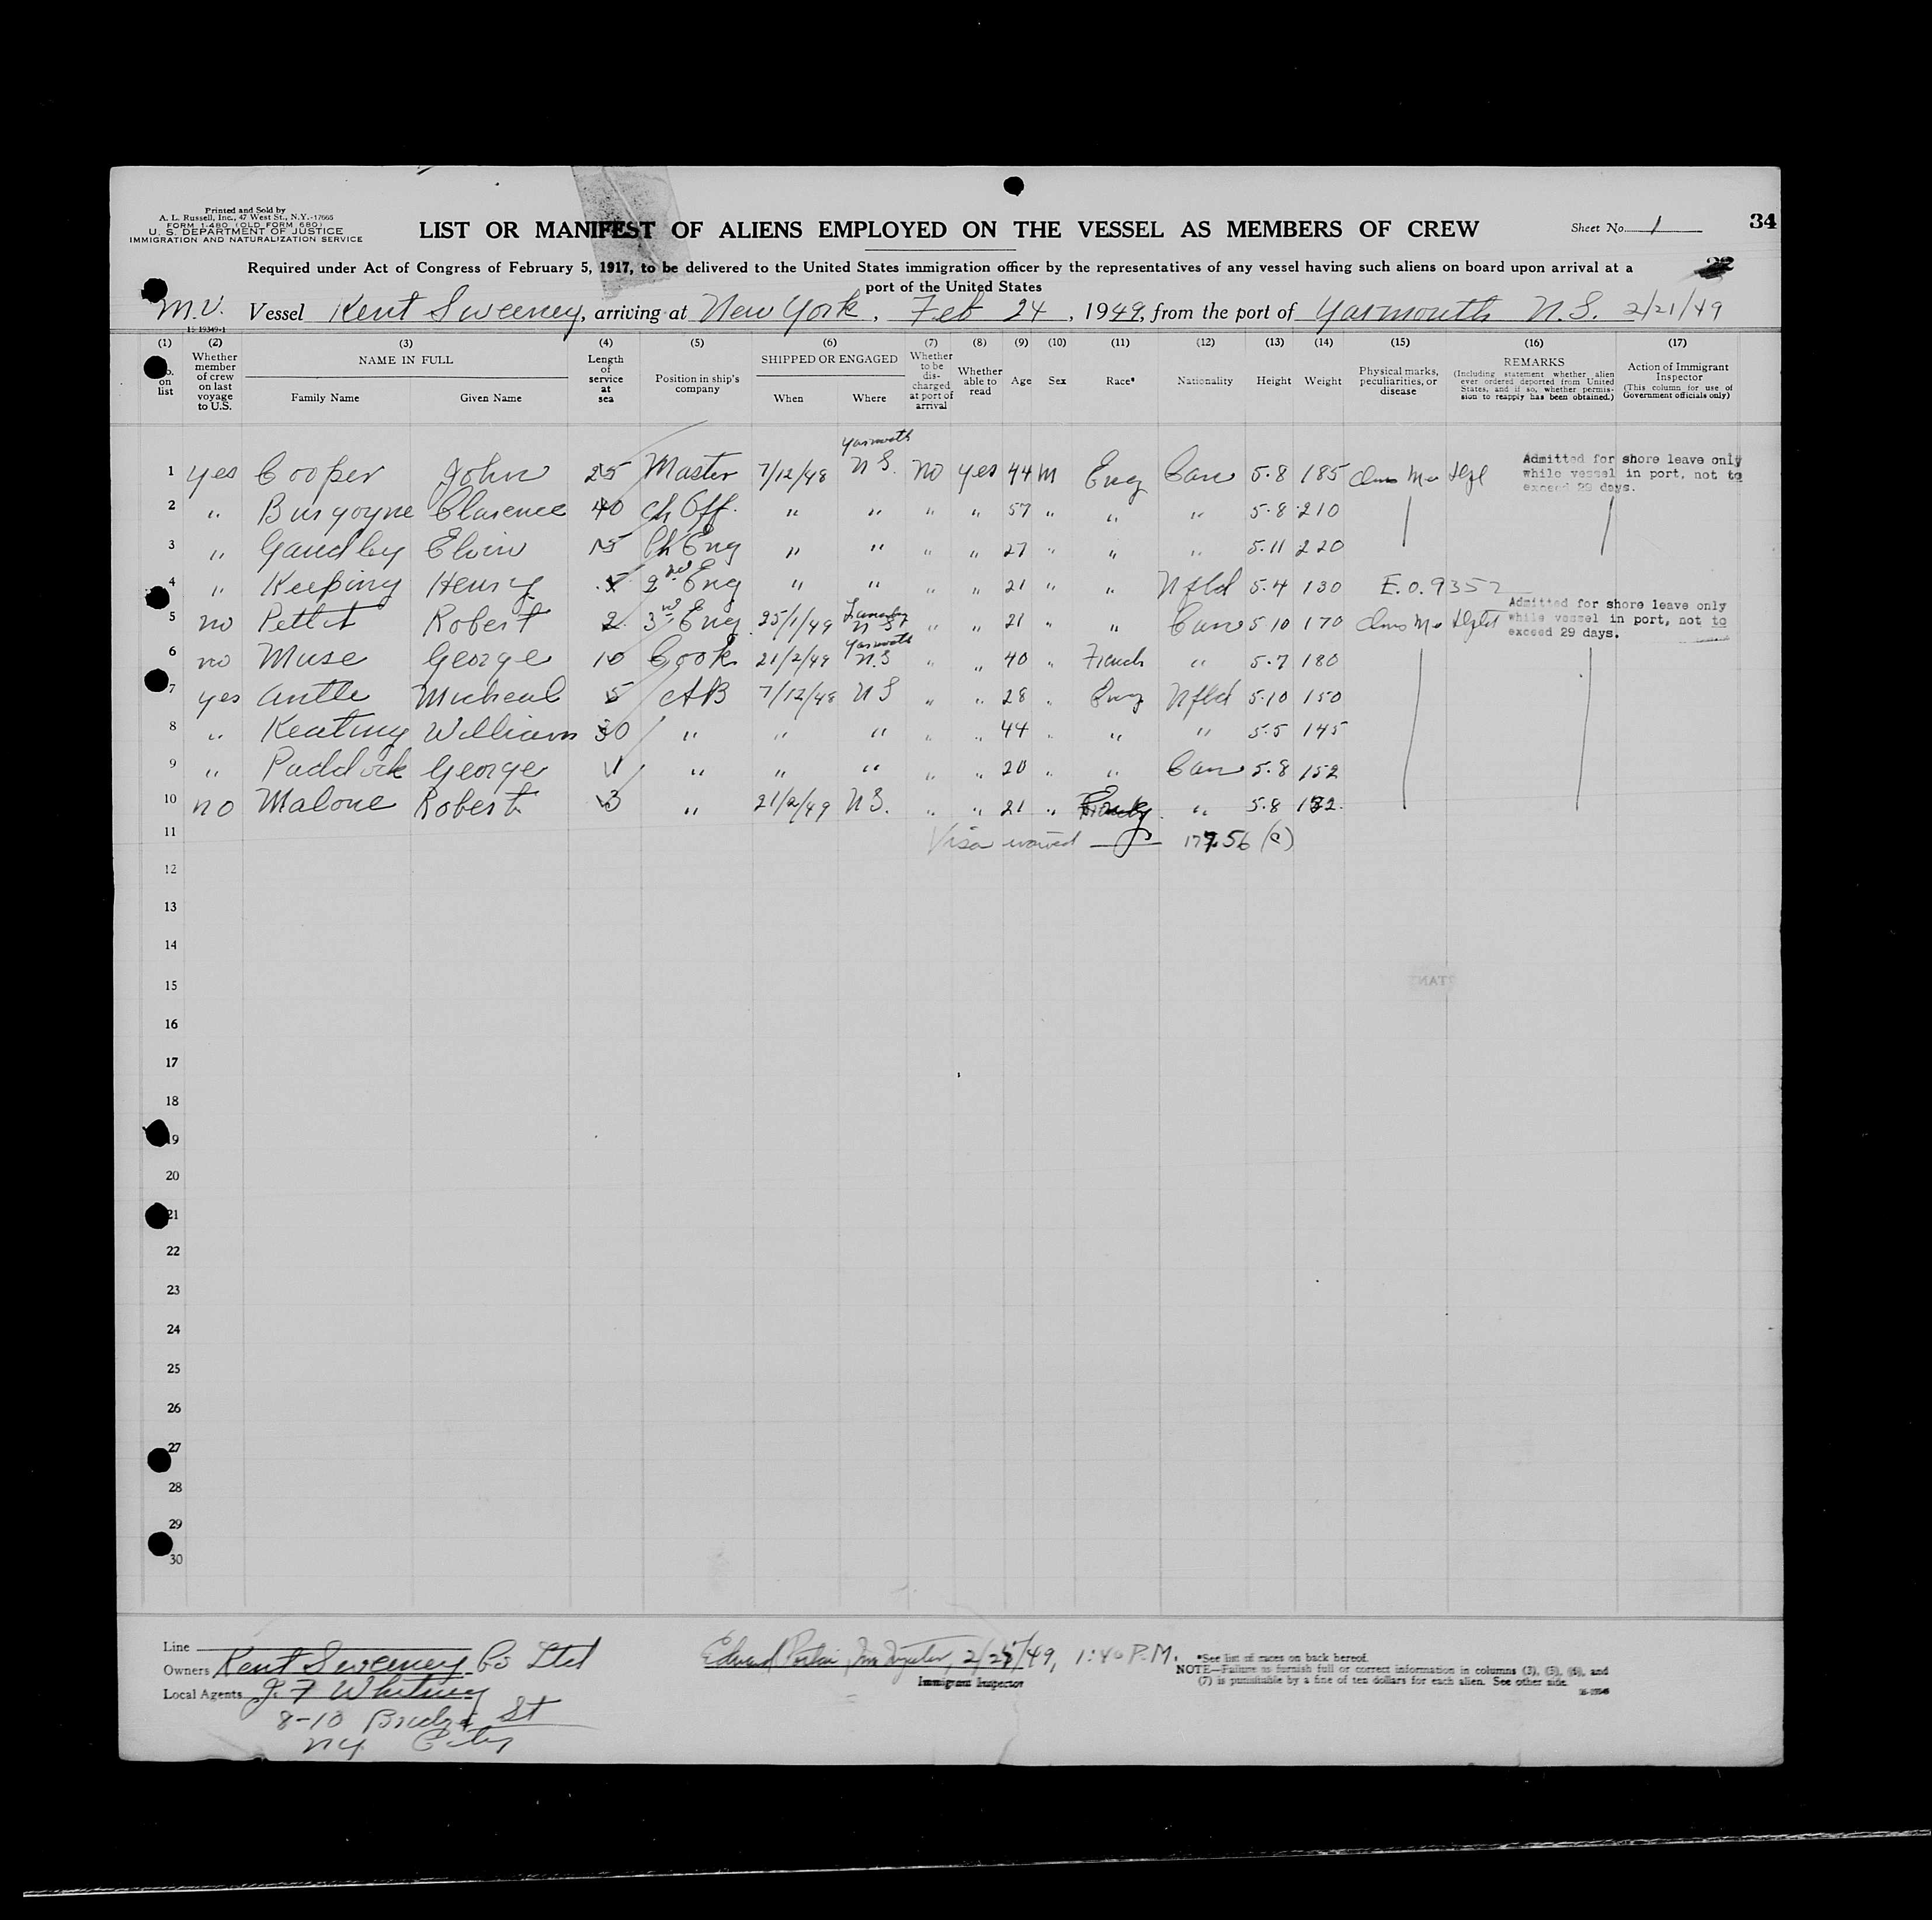 Printed and Sold by
A. L. Russell, Inc., 47 West St., N.Y.-17665
FORM I-480 (OLD FORM 680)
U. S. DEPARTMENT OF JUSTICE
IMMIGRATION AND NATURALIZATION SERVICE
LIST OR MANIFEST OF ALIENS EMPLOYED ON THE VESSEL AS MEMBERS OF CREW
Sheet No. 1
34
Required under Act of Congress of February 5, 1917, to be delivered to the United States immigration officer by the representatives of any vessel having such aliens on board upon arrival at a
port of the United States
M.V. Vessel Kent Sweeney, arriving at New York, Feb 24, 1949, from the port of Yarmouth N.S. 2/21/49
16-19349-1
(1) (2) (3) (4) (5) (6) (7) (8) (9) (10) (11) (12) (13) (14) (15) (16) (17)
on list
Whether member of crew on last voyage to U.S.
NAME IN FULL
Family Name Given Name
Length of service at sea
Position in ship's company
SHIPPED OR ENGAGED
When Where
Whether to be discharged at port of arrival
Whether able to read
Age
Sex
Race*
Nationality
Height
Weight
Physical marks, peculiarities, or disease
REMARKS
(Including statement whether alien ever ordered deported from United States, and if so, whether permission to reapply has been obtained.)
Action of Immigrant Inspector
(This column for use of Government officials only)
1 yes Cooper John 25 Master 7/12/48 Yarmouth N S. no yes 44 m Eng Can 5.8 185 Admitted for shore leave only while vessel in port, not to exceed 29 days.
2 " Burgoyne Clarence 40 Ch Off. " " " " 57 " " " 5.8 210
3 " Gaudley Elvin 15 Ch Eng " " " " 27 " " " 5.11 220
4 " Keeping Henry 2nd Eng " " " " 21 " " Nfld 5.4 130 E.O. 9352
5 no Pettit Robert 2 3rd Eng 25/1/49 " " 21 " " Can 5.10 170 Admitted for shore leave only while vessel in port, not to exceed 29 days.
6 no Muse George 10 Cook 21/2/49 Yarmouth N.S " " 40 " French " 5.7 180
7 yes Antle Micheal 5 AB 7/12/48 N S " " 28 " Eng Nfld 5.10 150
8 " Keating William 30 " " " " " 44 " " " 5.5 145
9 " Paddock George 1 " " " " " 20 " " Can 5.8 152
10 no Malone Robert 3 " 21/2/49 N S. " " 21 " " 5.8
11 Visa waived 177.56 (c)
12
13
14
15
16
17
18
19
20
21
22
23
24
25
26
27
28
29
30
Line
Owners Kent Sweeney Co Ltd
Local Agents J. F Whitney
8-10 Bridge St
NY City
1:40 P.M.
Immigrant Inspector
*See list of races on back hereof.
NOTE—Failure to furnish full or correct information in columns (3), (5), (6), and
(7) is punishable by a fine of ten dollars for each alien. See other side.